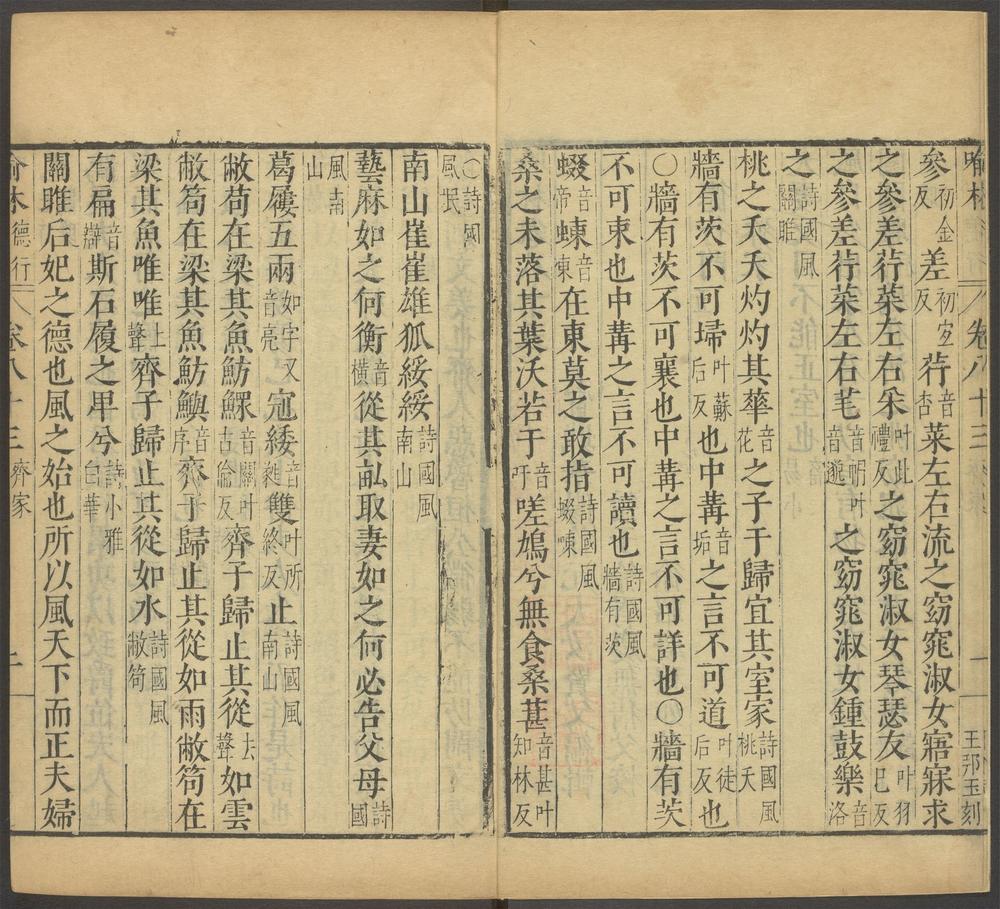 喻林 卷八十三 一 王邦玉刻
參初金反差初宜反荇音杏菜左右流之窈窕淑女寤寐求
之參差荇菜左右采叶此禮反之窈窕淑女琴瑟友叶羽已反
之參差荇菜左右芼音帽叶音邈之窈窕淑女鍾鼓樂音洛
之詩國風關雎
桃之夭夭灼灼其華音花之子于歸宜其室家詩國風桃夭
牆有茨不可埽叶蘇后反也中冓音垢之言不可道叶徒后反也
○牆有茨不可襄也中冓之言不可詳也○牆有茨
不可束也中冓之言不可讀也詩國風牆有茨
蝃音帝蝀音東在東莫之敢指詩國風蝃蝀
桑之未落其葉沃若于音吁嗟鳩兮無食桑葚音甚叶知林反
○詩國風氓
南山崔崔雄狐綏綏詩國風南山
藝麻如之何衡音橫從其畝取妻如之何必告父母詩國
風南山
葛屨五兩如字又音亮冠緌音甤雙叶所終反止詩國風南山
敝笱在梁其魚魴鰥音關叶古倫反齊子歸止其從去聲如雲
敝笱在梁其魚魴鱮音序齊子歸止其從如雨敝笱在
梁其魚唯唯上聲齊子歸止其從如水詩國風敝笱
有扁音辮斯石履之卑兮詩小雅白華
關雎后妃之德也風之始也所以風天下而正夫婦
喻林德行 卷八十三 齊家